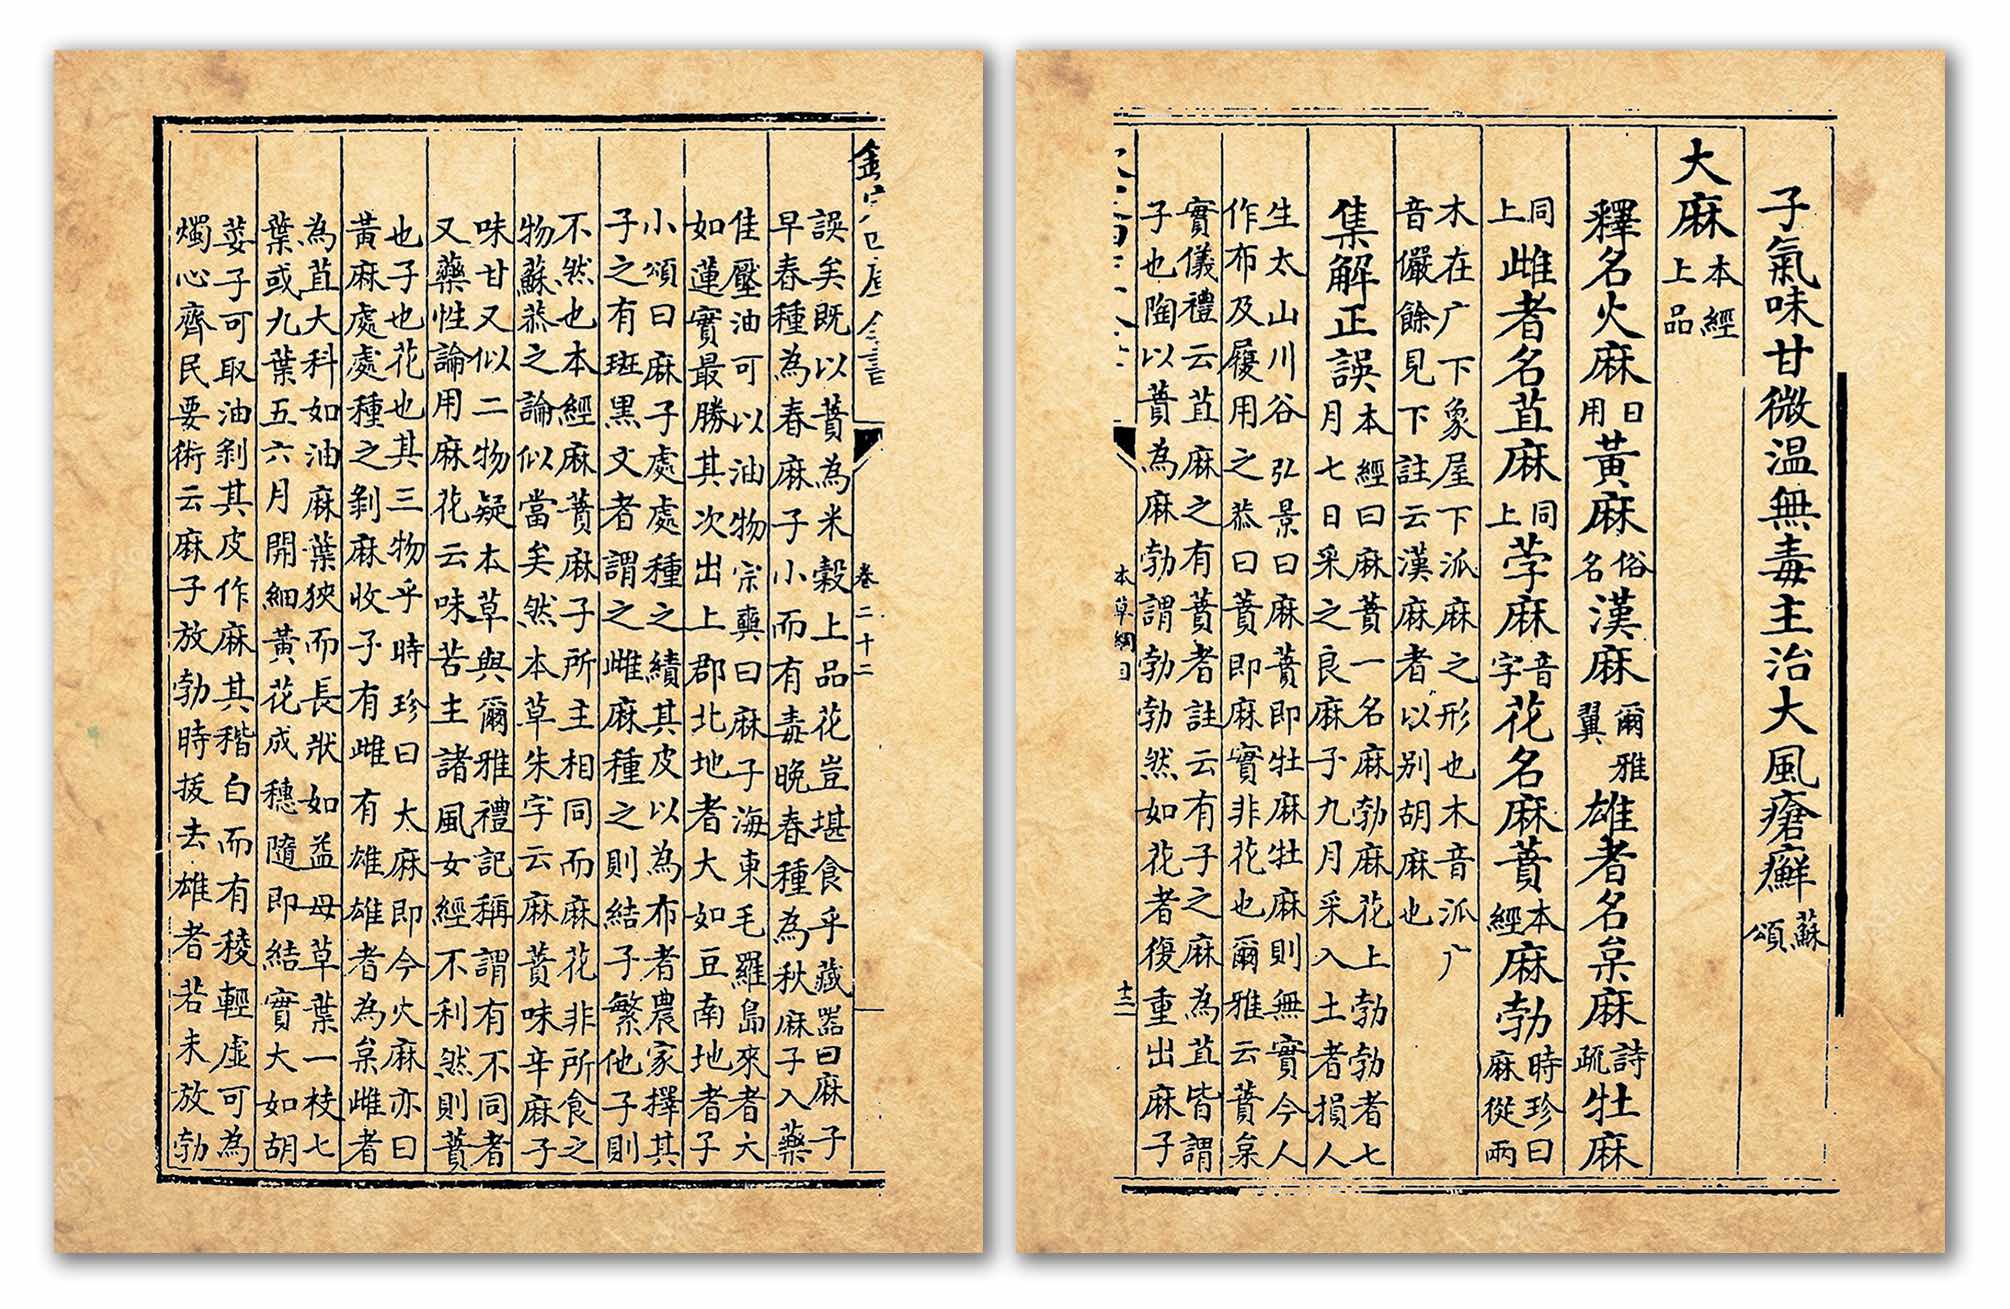 子氣味甘微温無毒主治大風瘡癬蘇頌
大麻本經上品
釋名火麻日用黃麻俗名漢麻爾雅翼雄者名枲麻詩疏牡麻
同上雌者名苴麻同上荸麻音字花名麻蕡本經麻勃時珍曰麻從兩
木在广下象屋下派麻之形也木音派广
音儼餘見下註云漢麻者以別胡麻也
集解正誤本經曰麻蕡一名麻勃麻花上勃勃者七
月七日采之良麻子九月采入土者損人
生太山川谷弘景曰麻蕡即牡麻牡麻則無實今人
作布及履用之恭曰蕡即麻實非花也爾雅云蕡枲
實儀禮云苴麻之有蕡者註云有子之麻為苴皆謂
子也陶以蕡為麻勃謂勃勃然如花者復重出麻子
本草綱目
十三
卷二十二
誤矣既以蕡為米穀上品花豈堪食乎藏器曰麻子
早春種為春麻子小而有毒晚春種為秋麻子入藥
佳壓油可以油物宗奭曰麻子海東毛羅島來者大
如蓮實最勝其次出上郡北地者大如豆南地者子
小頌曰麻子處處種之績其皮以為布者農家擇其
子之有斑黑文者謂之雌麻種之則結子繁他子則
不然也本經麻蕡麻子所主相同而麻花非所食之
物蘇恭之論似當矣然本草朱字云麻蕡味辛麻子
味甘又似二物疑本草與爾雅禮記稱謂有不同者
又藥性論用麻花云味苦主諸風女經不利然則蕡
也子也花也其三物乎時珍曰大麻即今火麻亦曰
黃麻處處種之剝麻收子有雌有雄雄者為枲雌者
為苴大科如油麻葉狹而長狀如益母草葉一枝七
葉或九葉五六月開細黃花成穗隨即結實大如胡
荽子可取油剝其皮作麻其稭白而有稜輕虛可為
燭心齊民要術云麻子放勃時拔去雄者若未放勃